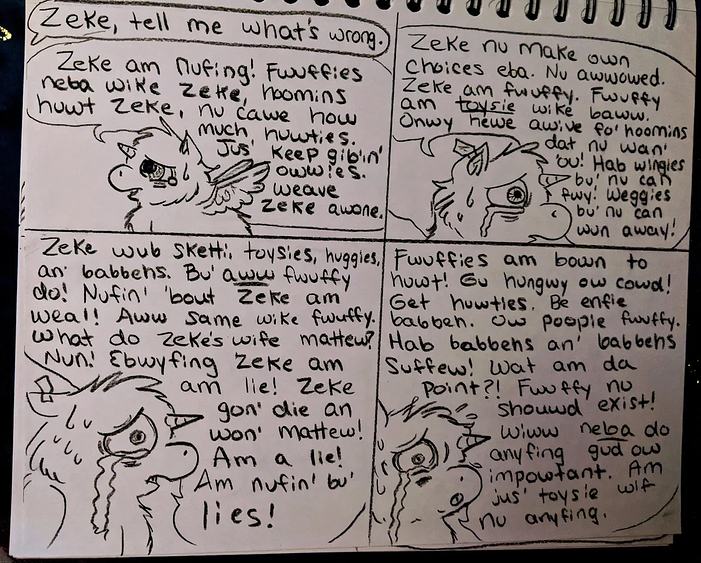 Zeke, tell me what's wrong.
Zeke am Nufing! Fwuffies
neba wike Zeke, hoomins
huwt Zeke, nu cawe how
much huwties.
Jus' keep gib'in'
oww'es.
weave
Zeke awone.
Zeke nu make own
choices eba. Nu awwowed.
Zeke am fwuffy. Fwuffy
am toysie wike baww.
Onwy hewe awive fo' hoomins
dat nu wan'
'ou! Hab wingies
bu' nu can
fwy! Weggies
bu' nu can
wun away!
Zeke wub sketti, toysies, huggies,
an' babbehs. Bu' aww fwuffy
do! Nufin' 'bout Zeke am
weal! Aww same wike fwuffy.
What do Zeke's wife mattew?
Nun! Ebwyfing Zeke am
am lie! Zeke
gon' die an
won' mattew!
Am a lie!
Am nufin' bu'
lies!
Fwuffies am bown to
huwt! Gu hungwy ow cowd!
Get huwties. Be enfie
babbeh. Ow poopie fwuffy.
Hab babbehs an' babbehs
Suffew! Wat am da
point?! Fwuffy nu
shouwd exist!
Wiww neba do
anyfing gud ow
impowtant. Am
jus' toysie wif
nu anyfing.